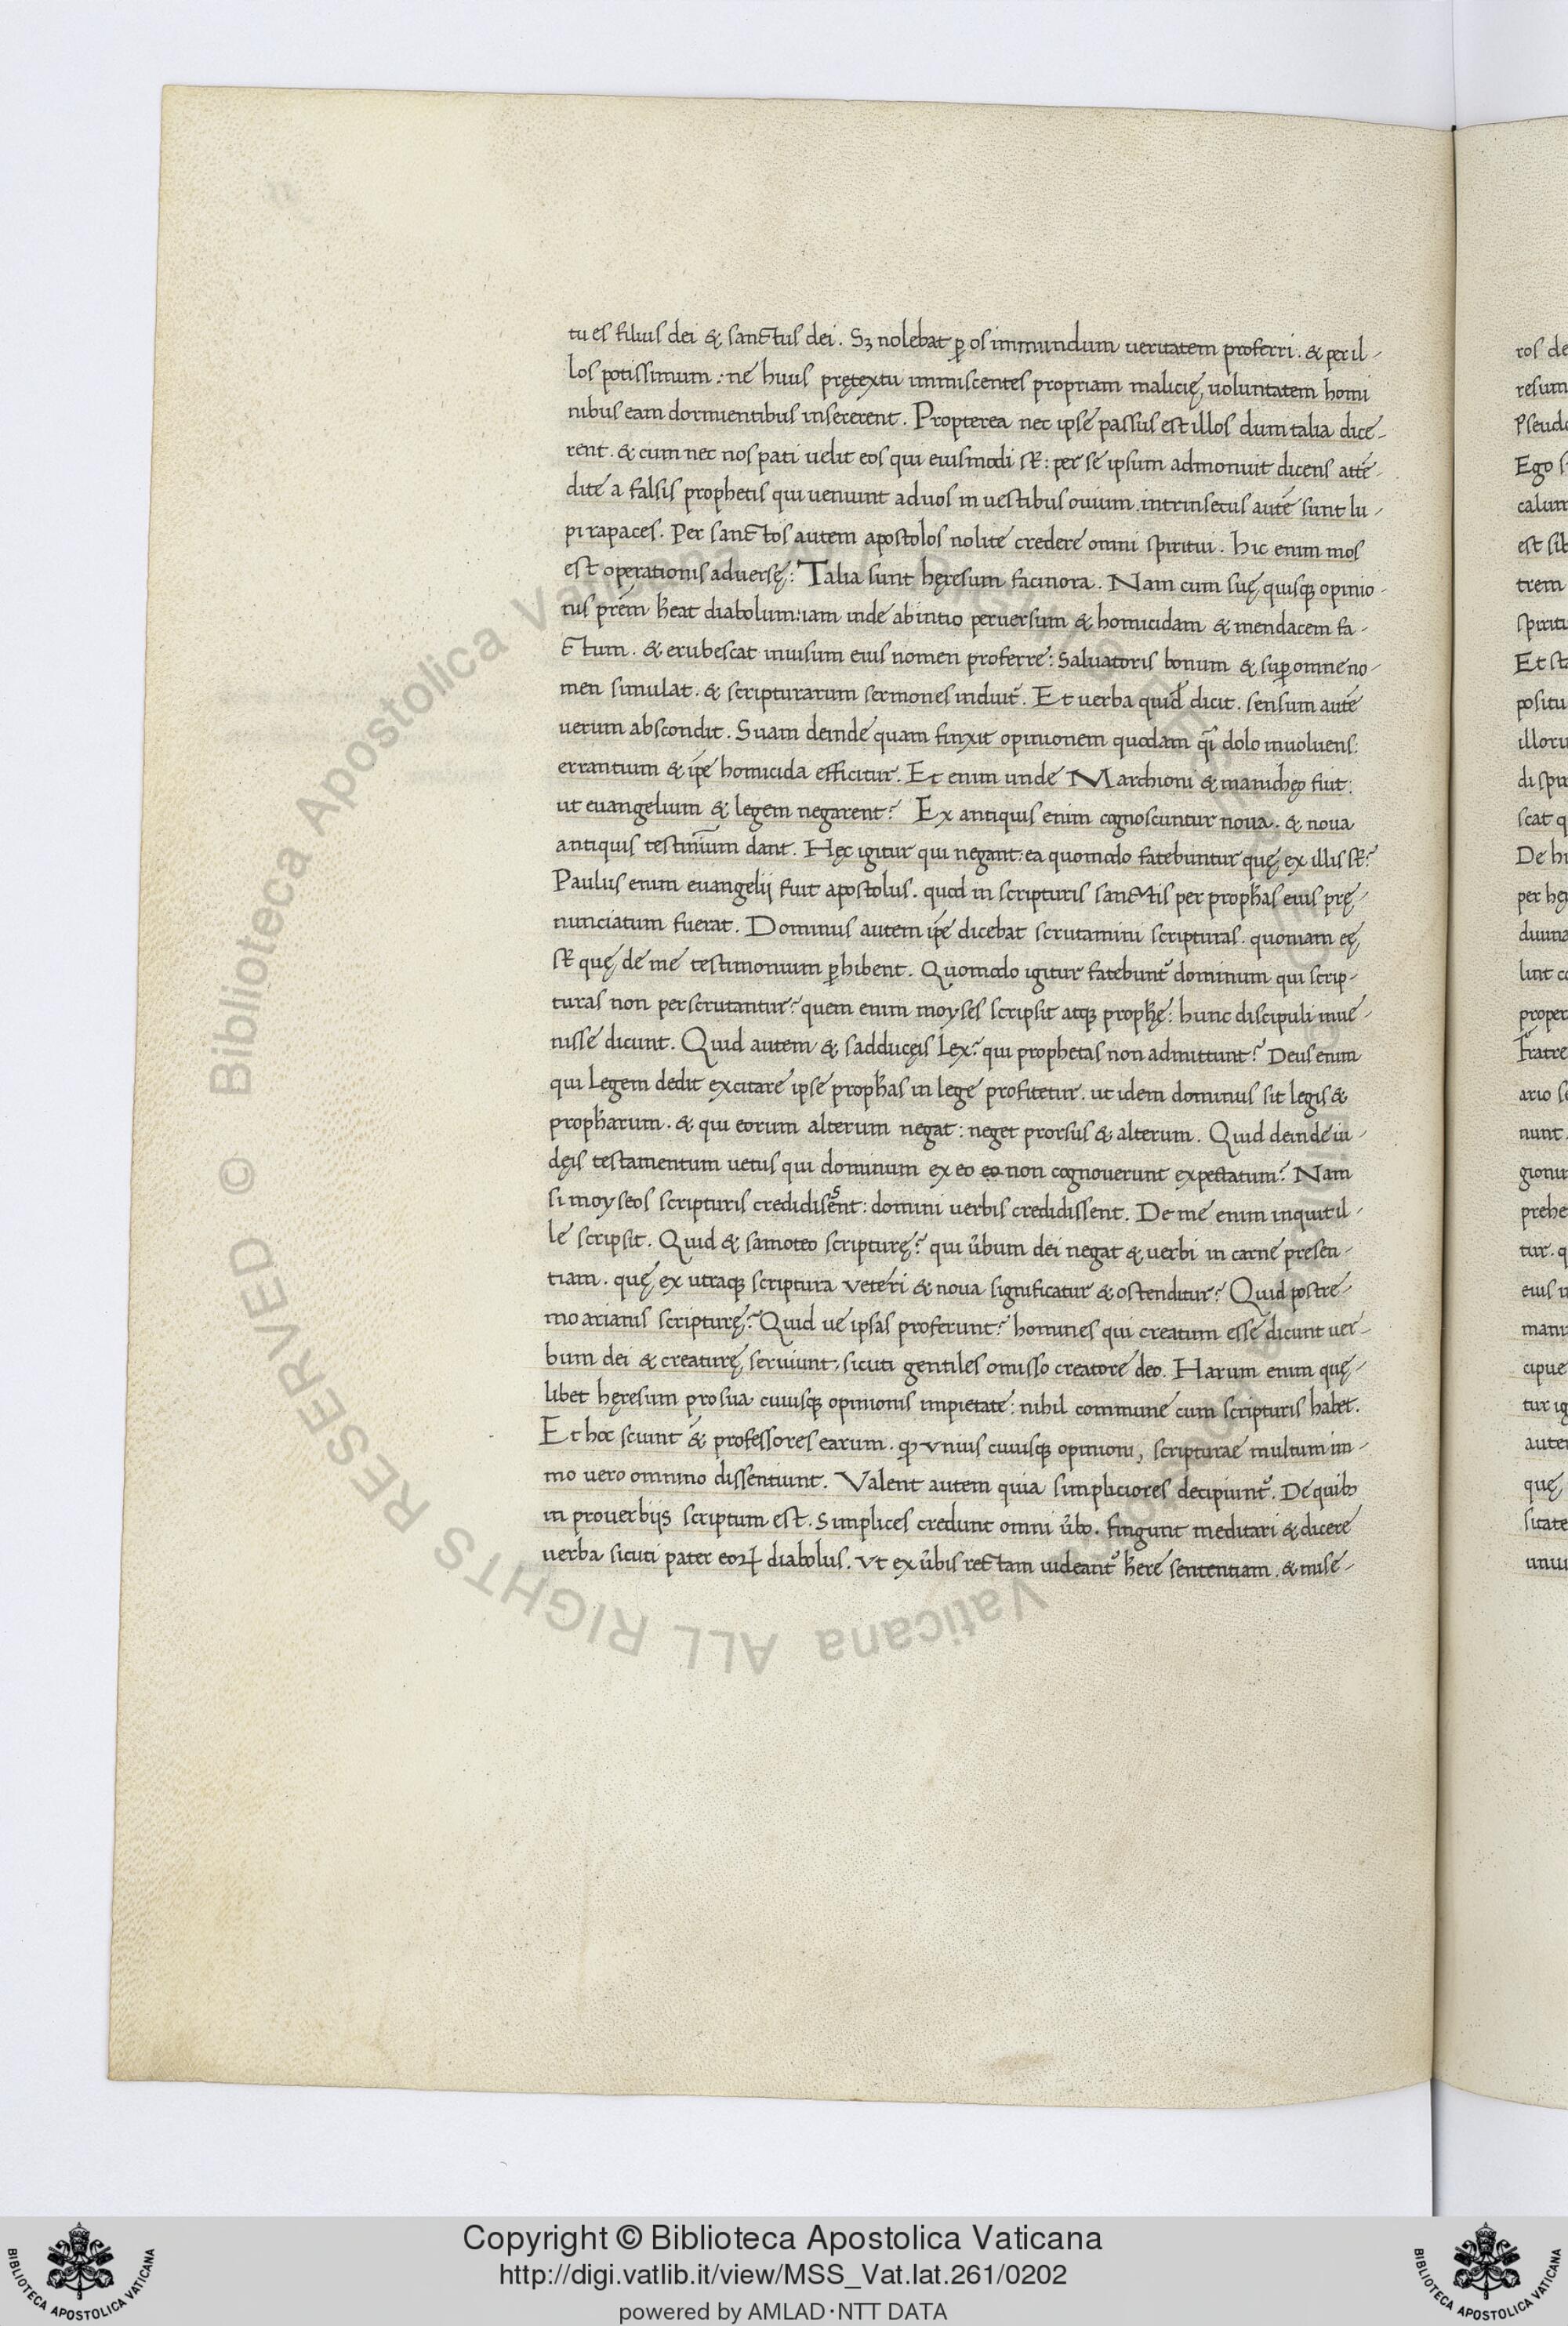 tu es filius dei & sanctus dei. Sꝫ nolebat ꝑ os immundum ueritatem proferri. & per il-
los potissimum: ne huius prętextu immiscentes propriam malicię uoluntatem homi
nibus eam dormientibus insererent. Propterea nec ipse passus est illos dum talia dice-
rent. & cum nec nos pati uelit eos qui eiusmodi st̄: per se ipsum admonuit dicens attē
dite a falsis prophetis qui ueniunt ad uos in uestibus ouium. intrinsecus autē sunt lu-
pi rapaces. Per sanctos autem apostolos nolite credere omni spiritui. Hic enim mos
est operationis aduersę: Talia sunt hęresum facinora. Nam cum suę quisqꝫ opinio-
nis prēm h̄eat diabolum: iam inde ab initio peruersum & homicidam & mendacem fa-
ctum. & erubescat inuisum eius nomen proferre: Saluatoris bonum & suꝑ omne no-
men simulat. & scripturarum sermones induit᷑. Et uerba quid̄ dicit. sensum autē
uerum abscondit. Suam deinde quam finxit opinionem quodam q̄i dolo inuoluens:
errantium & ip̄e homicida efficitur. Et enim unde Marchioni & manichęo fuit:
ut euangelium & legem negarent? Ex antiquis enim cognoscuntur noua. & noua
antiquis testim̄ium dant. Hęc igitur qui negant: ea quomodo fatebuntur quę ex illis st̄?
Paulus enim euangelij fuit apostolus. quod in scripturis sanctis per proph̄as eius prę-
nunciatum fuerat. Dominus autem ip̄e dicebat scrutamini scripturas. quoniam eę
st̄ quę de me testimonium ꝑhibent. Quomodo igitur fatebunt᷑ dominum qui scrip-
turas non perscrutantur? quem enim moyses scripsit atqꝫ proph̄ę: hunc discipuli inue-
nisse dicunt. Quid autem & sadducęis Lex? qui prophetas non admittunt? Deus enim
qui Legem dedit excitare ipse proph̄as in lege profitetur. ut idem dominus sit legis &
proph̄arum. & qui eorum alterum negat: neget prorsus & alterum. Quid deinde iu-
dęis testamentum uetus qui dominum ex eo eo non cognouerunt expectatum? Nam
si moyseos scripturis credidissent: domini uerbis credidissent. De me enim inquit il-
le scripsit. Quid & samoteo scripturę? qui u̓bum dei negat & uerbi in carne presen-
tiam. quę ex utraqꝫ scriptura veteri & noua significatur & ostenditur? Quid postre-
mo arianis scripturę? Quid ue ipsas proferunt? homines qui creatum esse dicunt uer-
bum dei & creaturę seruiunt, sicuti gentiles omisso creatore deo. Harum enim quę-
libet hęresum pro sua cuiusqꝫ opinionis impietate: nihil commune cum scripturis habet.
Et hoc sciunt & professores earum. ꝙ vnius cuiusqꝫ opinioni, scripturae multum im-
mo uero omnino dissentiunt. Valent autem quia simpliciores decipiunt᷑. De quibꝰ
in prouerbijs scriptum est. Simplices credunt omni u̓bo. fingunt meditari & dicere
uerba sicuti pater eoꝝ diabolus. vt ex u̓bis rectam uideant᷑ h̄ere sententiam. & mise-
ros de
Ego s
calum
trem
Et sta
De hi
per hę
aute
quę
Copyright © Biblioteca Apostolica Vaticana
http://digi.vatlib.it/view/MSS_Vat.lat.261/0202
powered by AMLAD·NTT DATA
BIBLIOTECA APOSTOLICA VATICANA
BIBLIOTECA APOSTOLICA VATICANA
© Biblioteca Apostolica Vaticana ALL RIGHTS RESERVED